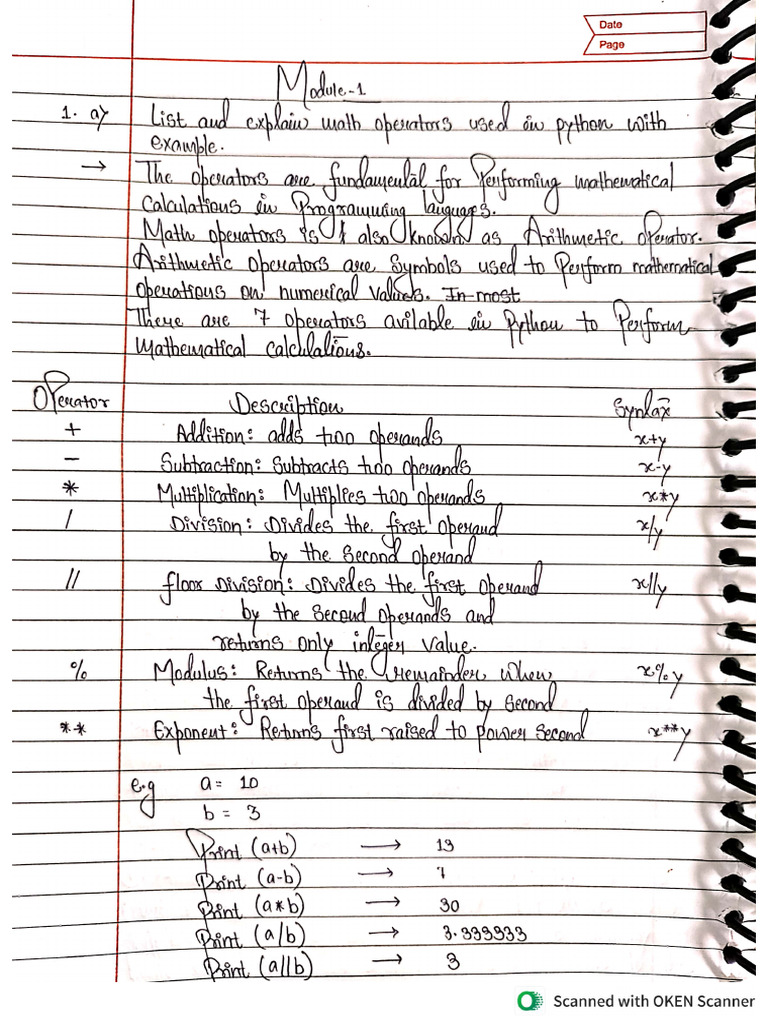 Date
Page
Module-1
1. a) List and explain math operators used in python with
example.
→ The operators are fundamental for Performing mathematical
Calculations in Programming languages.
Math operators is also known as Arithmetic operator.
Arithmetic operators are symbols used to Perform mathematical
operations on numerical values. In most
There are 7 operators avilable in Python to Perform
mathematical calculations.
Operator Description Syntax
+ Addition: adds two operands x+y
- Subtraction: Subtracts two operands x-y
* Multiplication: Multiplies two operands x*y
/ Division: Divides the first operand x/y
by the Second operand
// floor Division: Divides the first operand x//y
by the second operands and
returns only integer value.
% Modulus: Returns the remainder when x%y
the first operand is divided by second
** Exponent: Returns first raised to power second x**y
e.g a= 10
b = 3
Print (a+b) → 13
Print (a-b) → 7
Print (a*b) → 30
Print (a/b) → 3.333333
Print (a//b) → 3
Scanned with OKEN Scanner